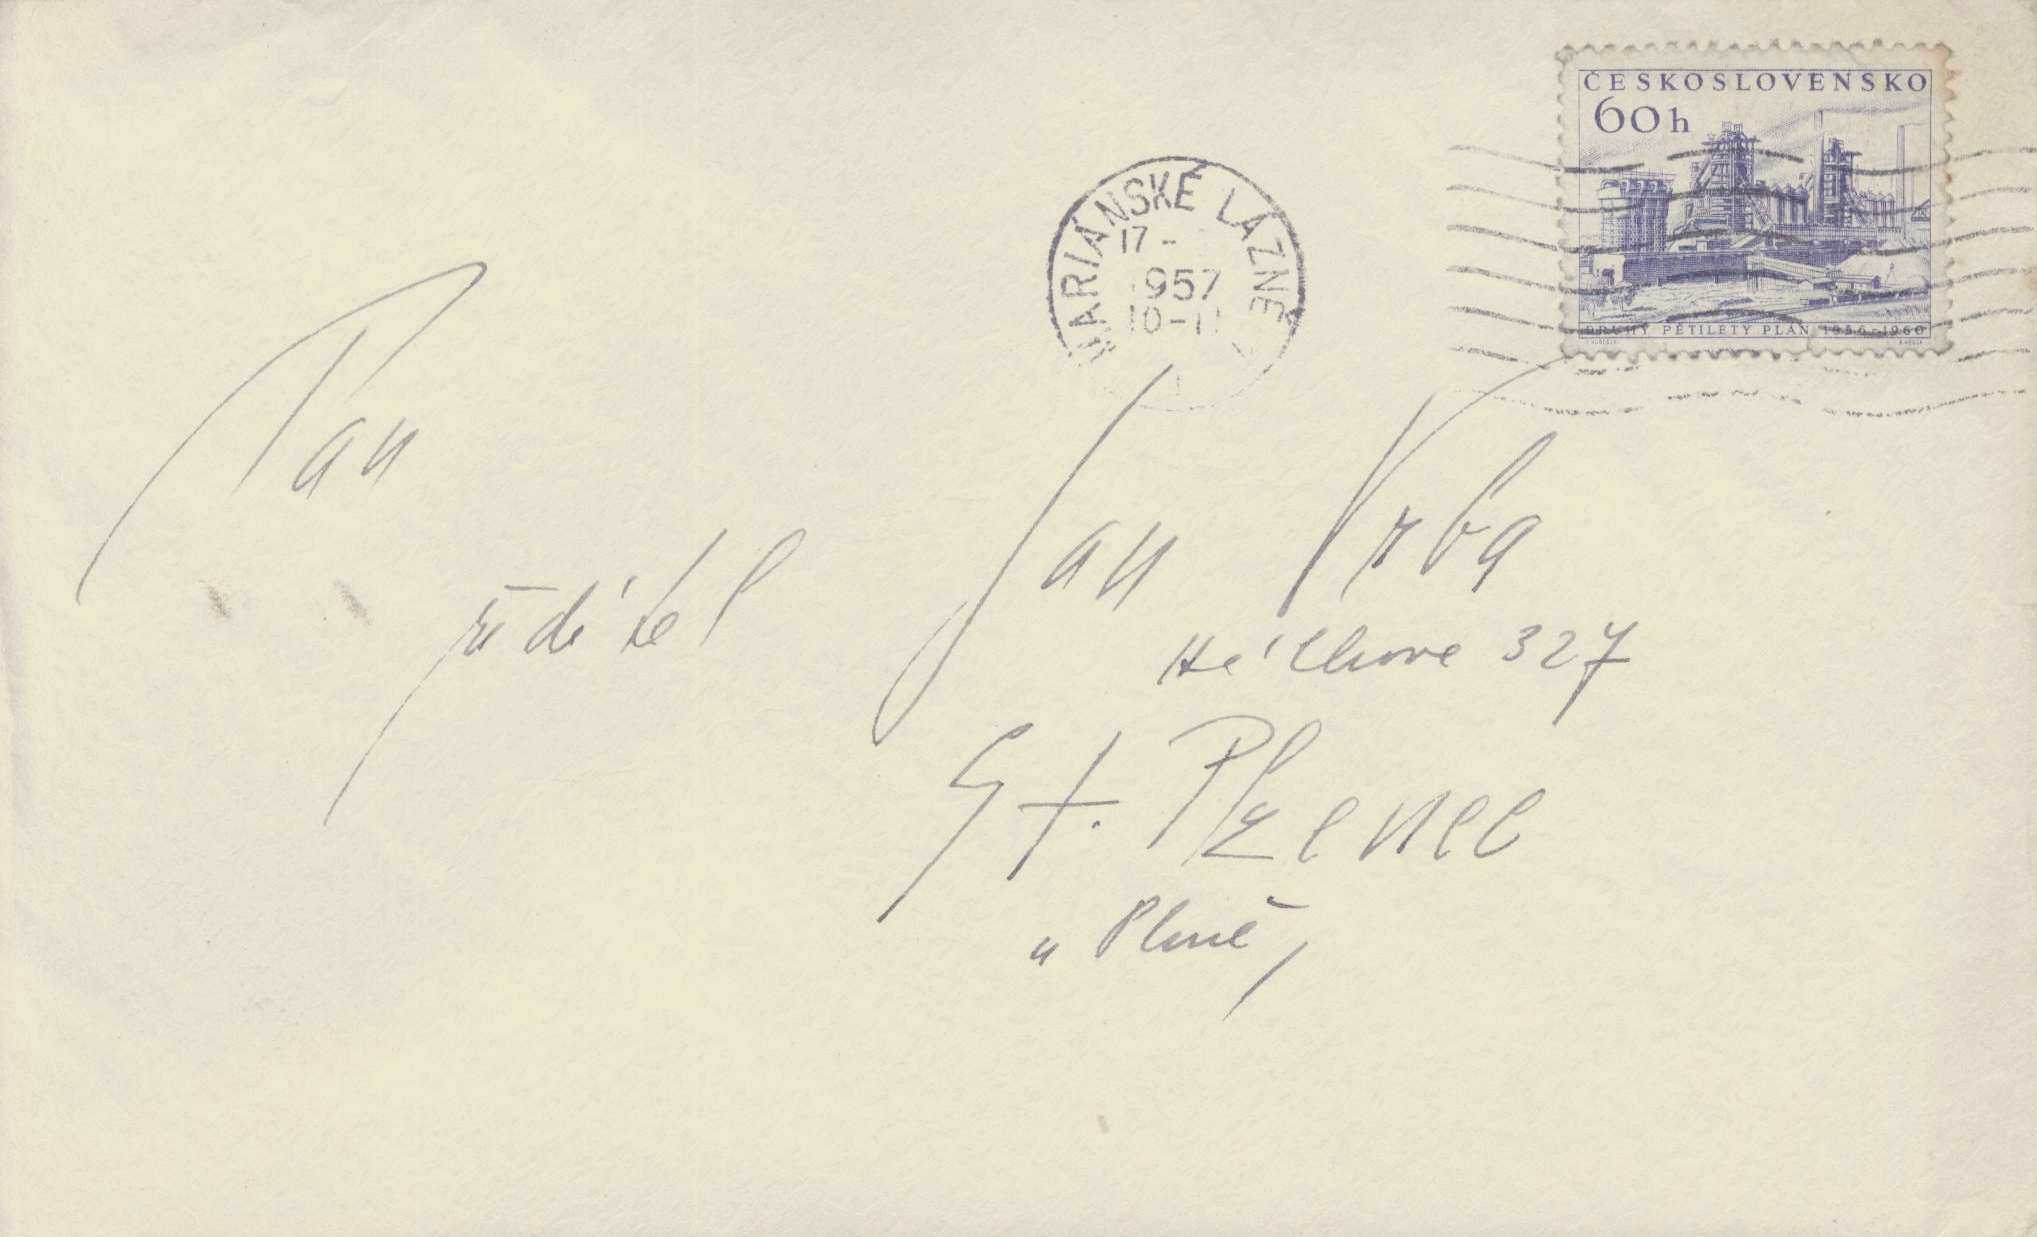 ČESKOSLOVENSKO
60 h
DRUHÝ PĚTILETÝ PLÁN 1956-1960
MARIÁNSKÉ LÁZNĚ
17 -
1957
10-11
Pan
ředitel Jan Vrba
Hálkova 327
St. Plzenec
u Plzně